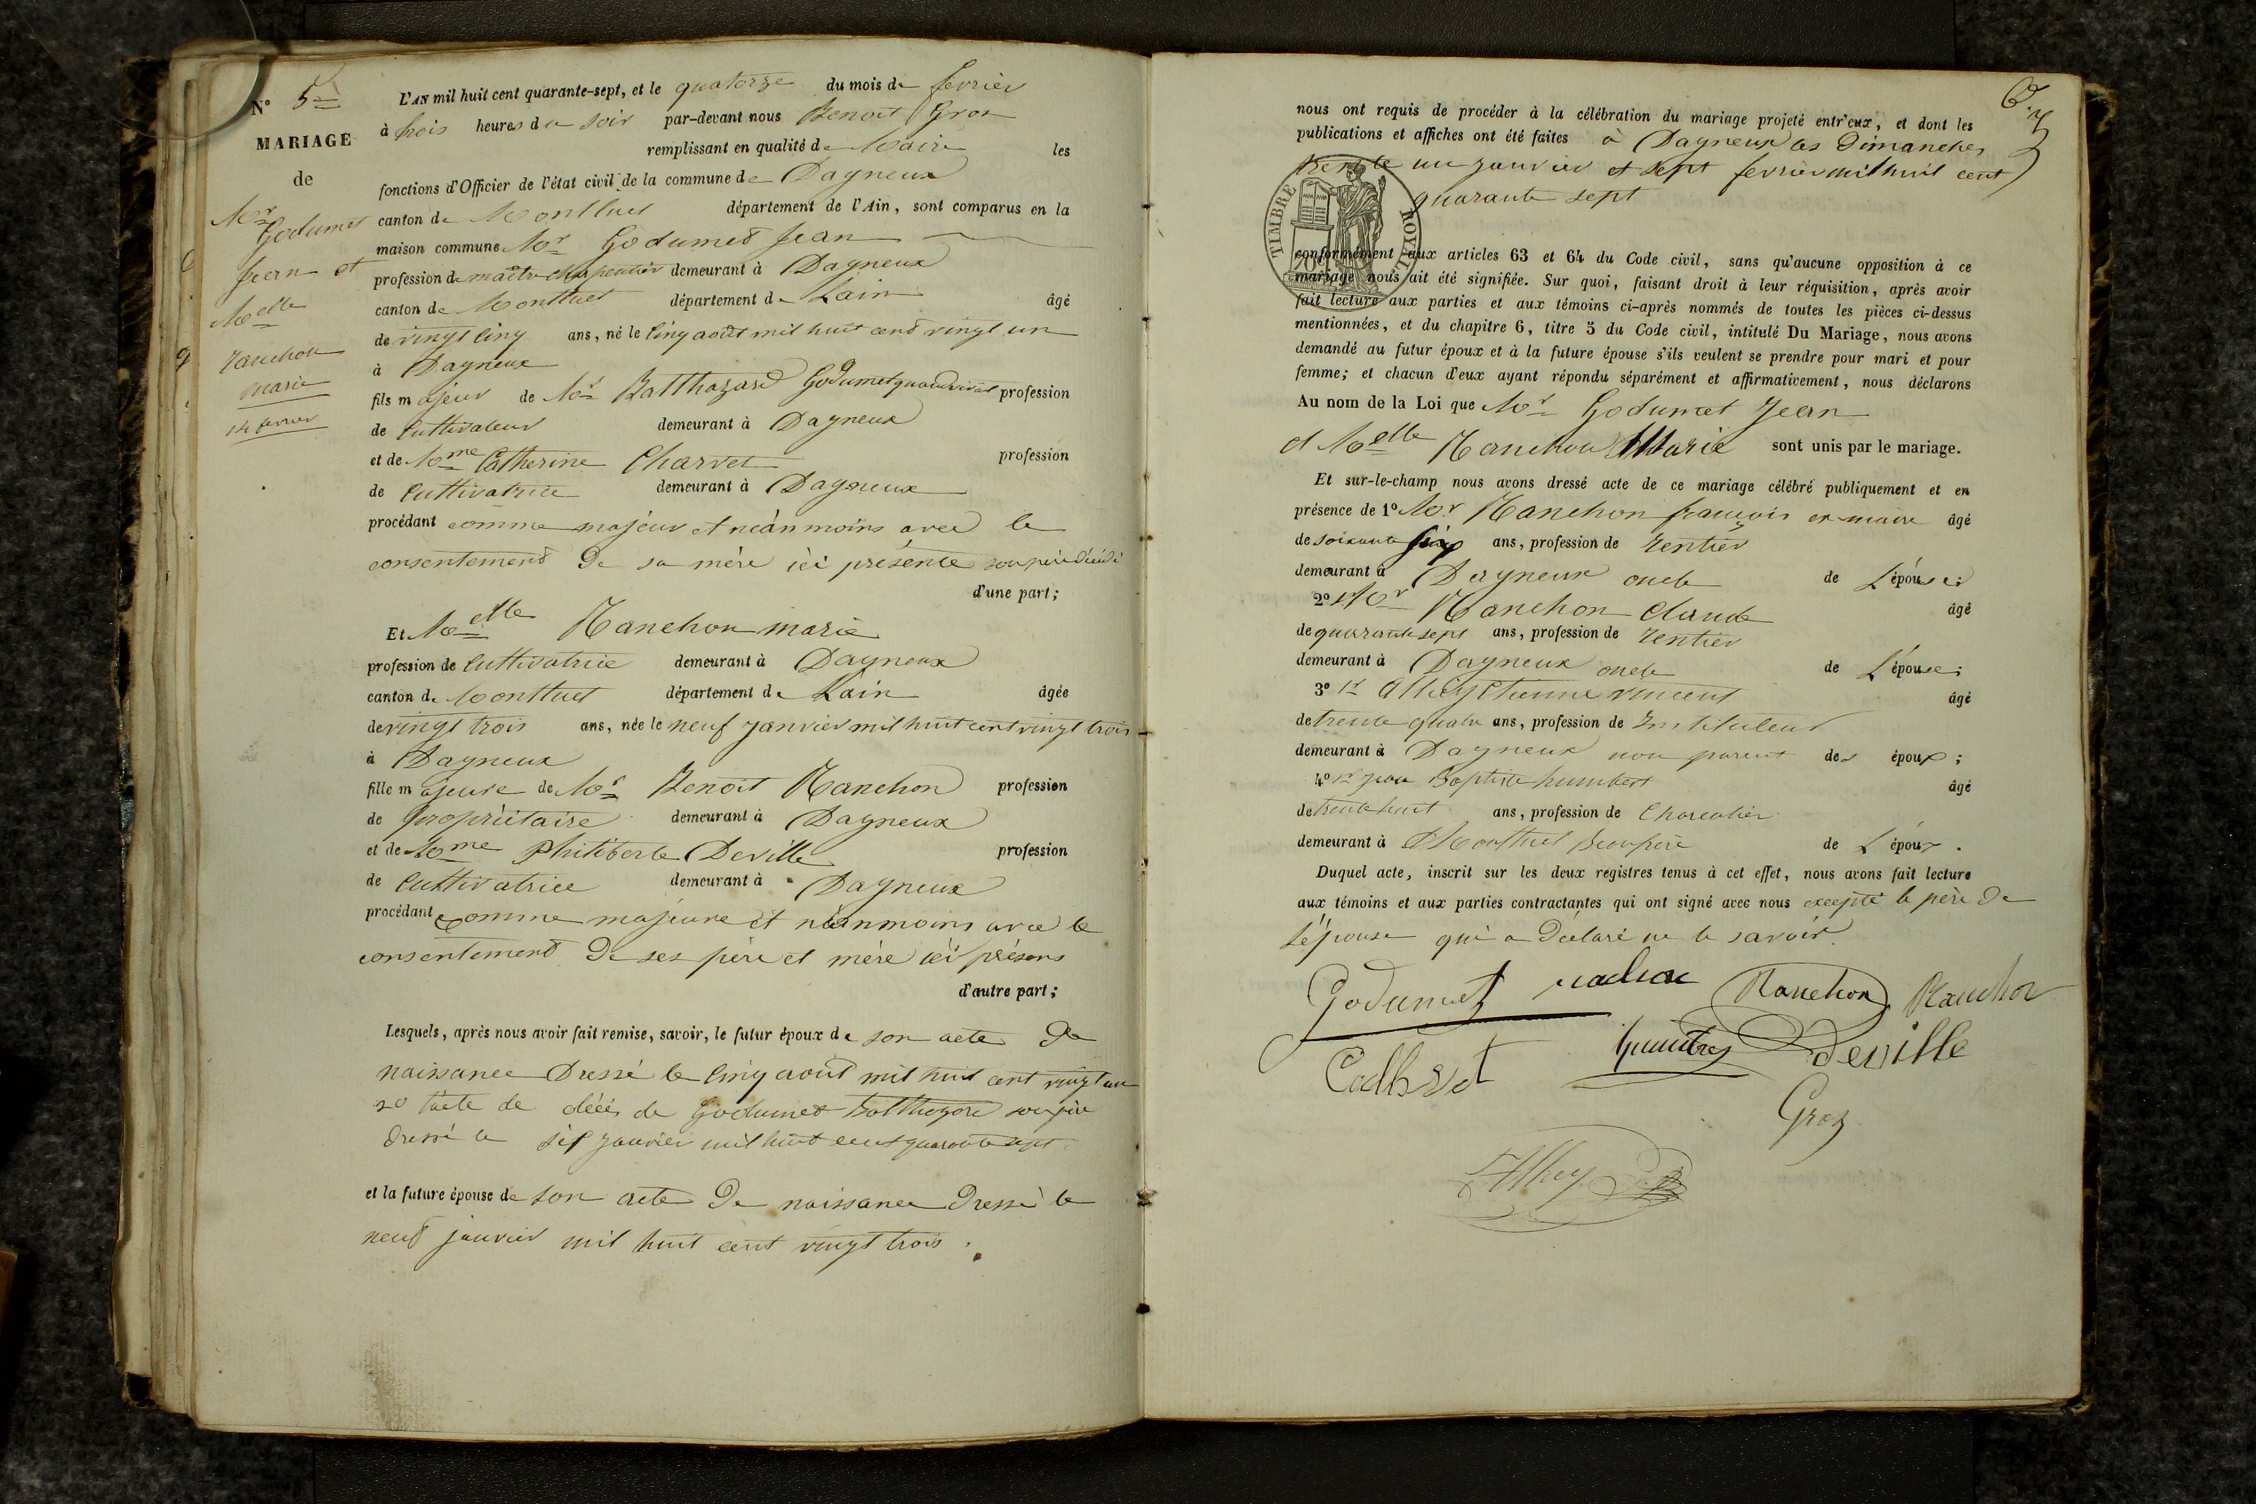 N° 5
MARIAGE
de
Mr
Godumet
jean et
Melle
Ranchon
marie
14 fevrier
L'AN mil huit cent quarante-sept, et le quatorze du mois de fevrier
à trois heures du soir par-devant nous Benoit Gros
remplissant en qualité de Maire les
fonctions d'Officier de l'état civil de la commune de Dagneux
canton de Montluel département de l'Ain, sont comparus en la
maison commune Mr Godumet Jean
profession de maître charpentier demeurant à Dagneux
canton de Montluel département de Lain âgé
de vingt cinq ans, né le cinq août mil huit cent vingt un
à Dagneux
fils majeur de Mr Balthazard Godumet quand vivait profession
de cultivateur demeurant à Dagneux
et de Mme Catherine Charvet profession
de cultivatrice demeurant à Dagneux
procédant comme majeur et néanmoins avec le
consentement de sa mère ici présente son père décédé
d'une part;
Et Melle Ranchon marie
profession de cultivatrice demeurant à Dagneux
canton de Montluel département de Lain âgée
de vingt trois ans, née le neuf janvier mil huit cent vingt trois
à Dagneux
fille majeure de Mr Benoit Ranchon profession
de propriétaire demeurant à Dagneux
et de Mme philiberte Deville profession
de cultivatrice demeurant à Dagneux
procédant comme majeure et néanmoins avec le
consentement de ses père et mère ici présens
d'autre part;
Lesquels, après nous avoir fait remise, savoir, le futur époux de son acte de
naissance dressé le cinq août mil huit cent vingt un
2o l'acte de décès de Godumet balthazard son père
dressé le six janvier mil huit cent quarante sept
et la future épouse de son acte de naissance dressé le
neuf janvier mil huit cent vingt trois.
nous ont requis de procéder à la célébration du mariage projeté entr'eux, et dont les
publications et affiches ont été faites à Dagneux les dimanches
trente un janvier et sept fevrier mil huit cent
quarante sept
TIMBRE ROYAL
conformément aux articles 63 et 64 du Code civil, sans qu'aucune opposition à ce
mariage nous ait été signifiée. Sur quoi, faisant droit à leur réquisition, après avoir
fait lecture aux parties et aux témoins ci-après nommés de toutes les pièces ci-dessus
mentionnées, et du chapitre 6, titre 5 du Code civil, intitulé Du Mariage, nous avons
demandé au futur époux et à la future épouse s'ils veulent se prendre pour mari et pour
femme; et chacun d'eux ayant répondu séparément et affirmativement, nous déclarons
Au nom de la Loi que Mr Godumet Jean
et Melle Ranchon Marie sont unis par le mariage.
Et sur-le-champ nous avons dressé acte de ce mariage célébré publiquement et en
présence de 1° Mr Ranchon françois ex maire âgé
de soixante six ans, profession de rentier
demeurant à Dagneux oncle de L'épouse;
2° Mr Ranchon Claude âgé
de quarante sept ans, profession de rentier
demeurant à Dagneux oncle de L'épouse;
3° Sr Alhoy Etienne vincent âgé
de trente quatre ans, profession de Instituteur
demeurant à Dagneux non parent des époux;
4° Sr jean Baptiste humbert âgé
de trente huit ans, profession de Charcutier
demeurant à Montluel beau père de L'époux.
Duquel acte, inscrit sur les deux registres tenus à cet effet, nous avons fait lecture
aux témoins et aux parties contractantes qui ont signé avec nous excepté le père de
L'épouse qui a déclaré ne le savoir.
Godumet Ranchon Ranchon
humbert Deville
Gros
Alhoy